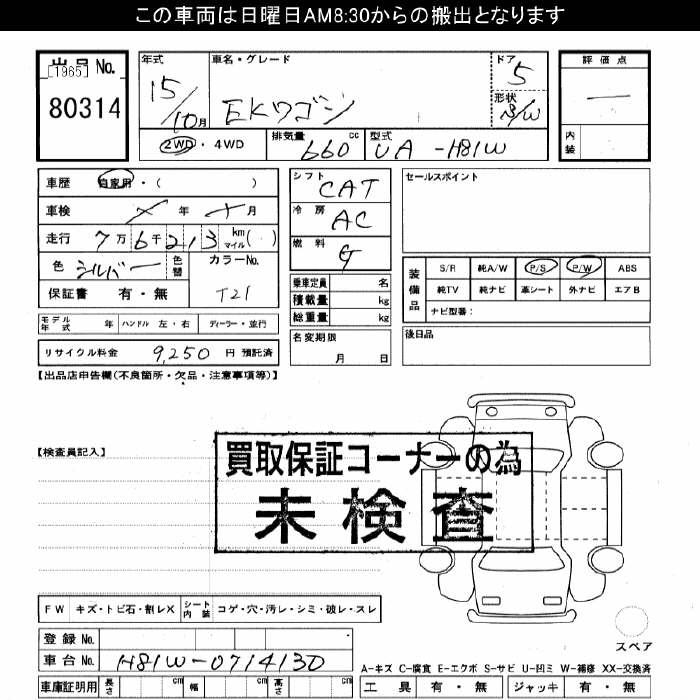 この車両は日曜日AM8:30からの搬出となります
出品No.
[1965]
80314
年式
15/10月
車名・グレード
EKワゴン
ドア
5
形状
評価点
―
内装
2WD・4WD
排気量 660 cc
型式 UA-H81W
車歴 自家用・( )
車検 年 月
走行 7万6千213 km マイル( )
色 シルバー 色替
カラーNo. T21
保証書 有・無
シフト CAT
冷房 AC
燃料 G
乗車定員 名
積載量 kg
総重量 kg
セールスポイント
装備品
S/R 純A/W P/S P/W ABS
純TV 純ナビ 革シート 外ナビ エアB
ナビ型番:
モデル年式 年 ハンドル 左・右 ディーラー・並行
リサイクル料金 9,250 円 預託済
名変期限
月 日
後日品
【出品店申告欄(不良箇所・欠品・注意事項等)】
【検査員記入】
買取保証コーナーの為
未検査
FW キズ・トビ石・割レX シート内装 コゲ・穴・汚レ・シミ・破レ・スレ
スペア
登録No.
車台No. H81W-0714130
車庫証明用 長さ cm 幅 cm 高さ cm
A-キズ C-腐食 E-エクボ S-サビ U-凹ミ W-補修 XX-交換済
工具 有・無 ジャッキ 有・無